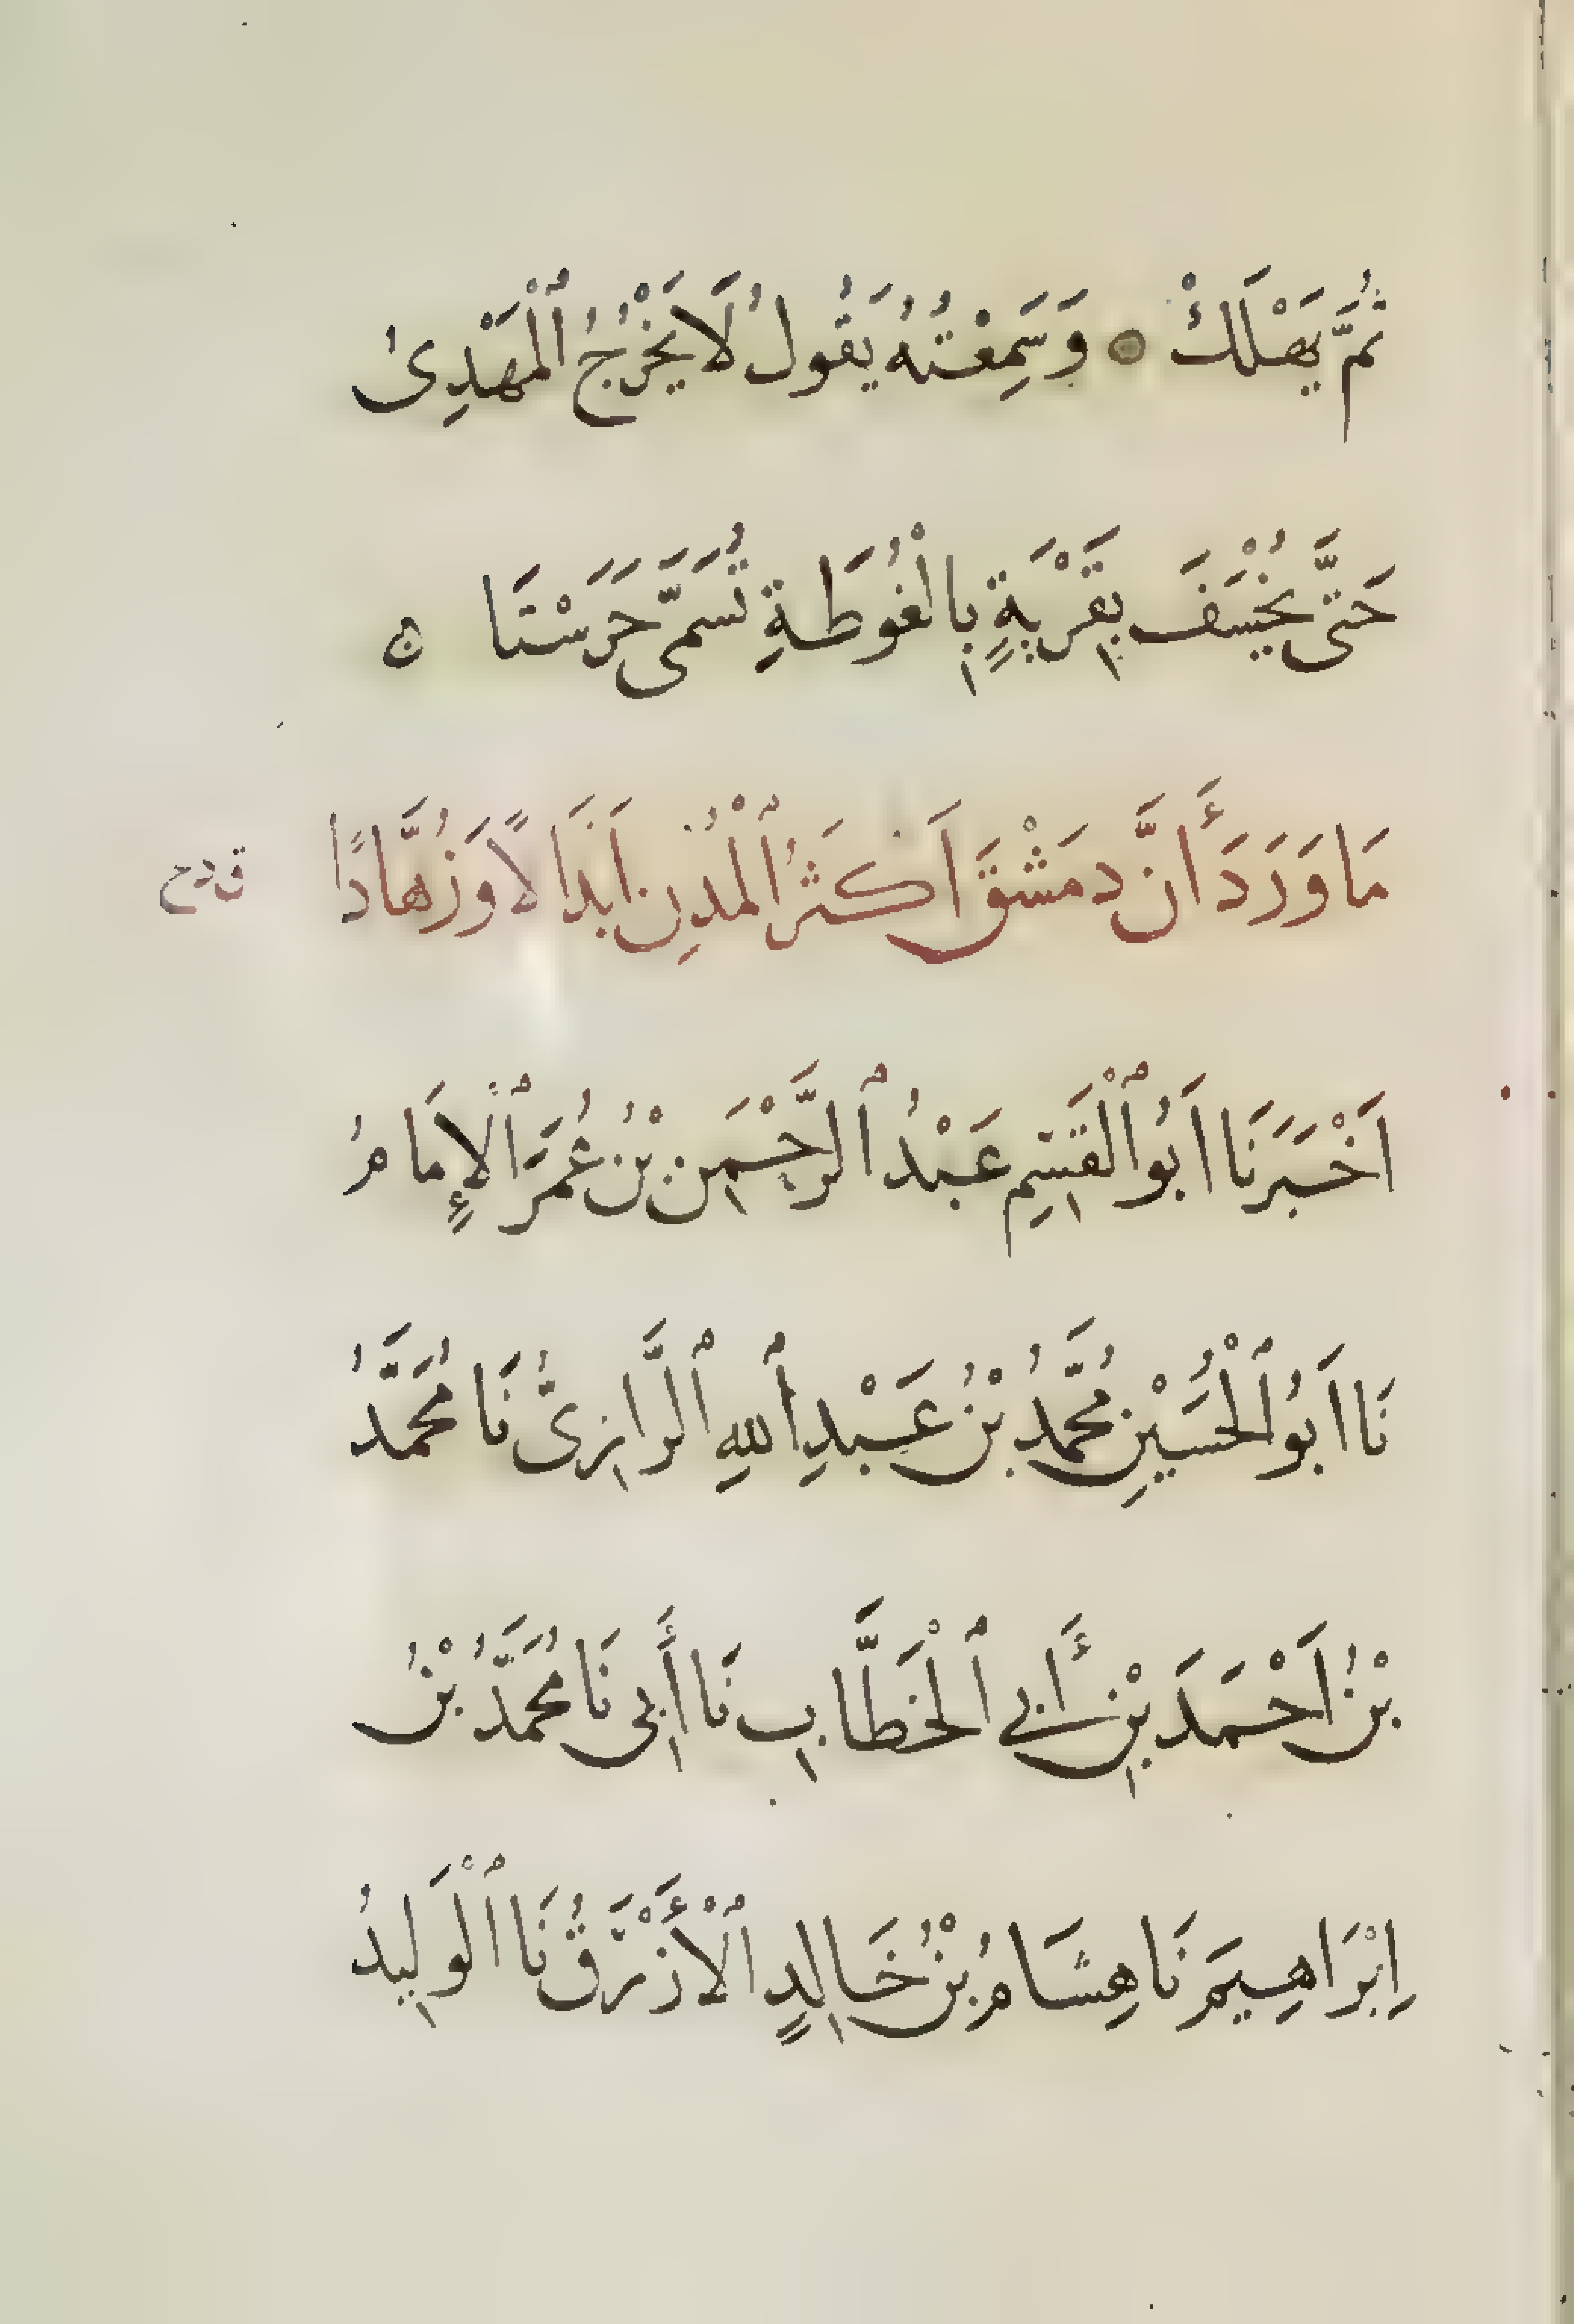 ثُمَّ يَهْلَكْ ۝ وَسَمِعْتُهُ يَقُولُ لَا يَخْرُجُ ٱلْمَهْدِىُ
حَتَّى يُخْسَفَ بِقَرْيَةٍ بِالْغُوطَةِ تُسَمَّى حَرَسْتَا ۝
مَا وَرَدَ أَنَّ دِمَشْقَ اَكثَرُ ٱلْمُدُنِ اَبْدَالًا وَزُهَّادًا
اَخْبَرَنَا اَبُو ٱلْقَسِمِ عَبْدُ ٱلرَّحْمَنِ بْنُ عُمَرَ ٱلْإِمَامُ
نَا اَبُو ٱلْحُسَيْنِ مُحَمَّدُ بْنُ عَبْدِ ٱللهِ ٱلرَّازِىُّ نَا مُحَمَّدُ
بْنُ اَحْمَدَ بْنِ أَبِي ٱلْخَطَّابِ نَا أَبِى نَا مُحَمَّدُ بْنُ
اِبْرَاهِيمَ نَا هِشَامُ بْنُ خَالِدٍ ٱلْأَزْرَقُ نَا ٱلْوَلِيدُ